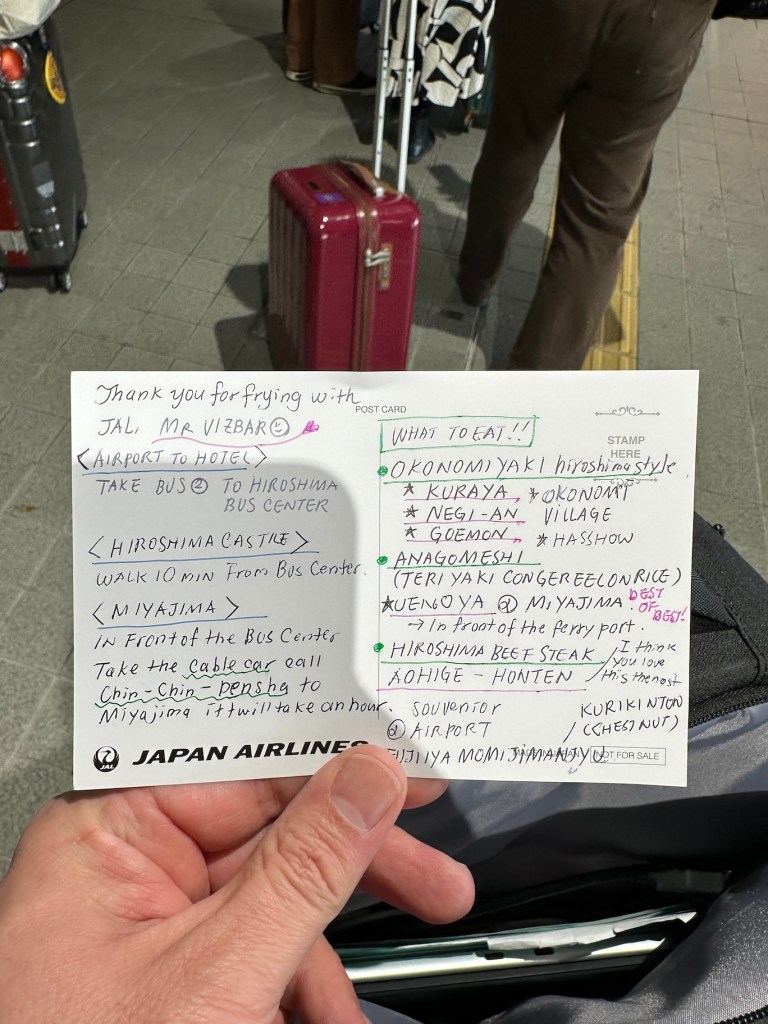 Thank you for frying with
JAL, MR VIZBAR
<AIRPORT TO HOTEL>
TAKE BUS ② TO HIROSHIMA
BUS CENTER
<HIROSHIMA CASTLE>
WALK 10 MIN FROM BUS CENTER.
<MIYAJIMA>
IN FRONT OF THE BUS CENTER
Take the cable car call
Chin-Chin-Densha to
Miyajima it twill take an hour.
JAL
JAPAN AIRLINES
POST CARD
STAMP
HERE
WHAT TO EAT!!
OKONOMIYAKI hiroshima style
★ KURAYA
★ NEGI-AN
★ GOEMON
★ OKONOMI
VILLAGE
★ HASSHOW
ANAGOMESHI
(TERIYAKI CONGEREEL ON RICE)
★UENOYA @ MIYAJIMA BEST
OF
BEST!
→ In front of the ferry port.
HIROSHIMA BEEF STEAK
AOHIGE - HONTEN
I think
you love
this the most
SOUVENIOR
@ AIRPORT
KURIKINTON
(CHESTNUT)
FUJIIYA MOMIJIMANJYU
NOT FOR SALE